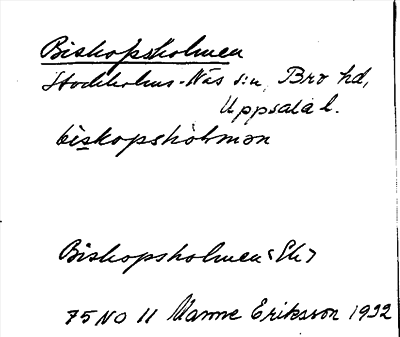 Biskopsholmen
Stockholms-Näs s:n, Bro hd,
Uppsala l.
biskopshòlmən
Biskopsholmen <Ek>
75 NO 11 Manne Eriksson 1932